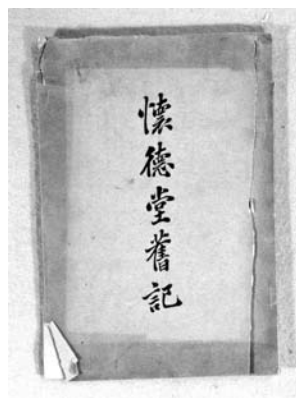 懷德堂舊記